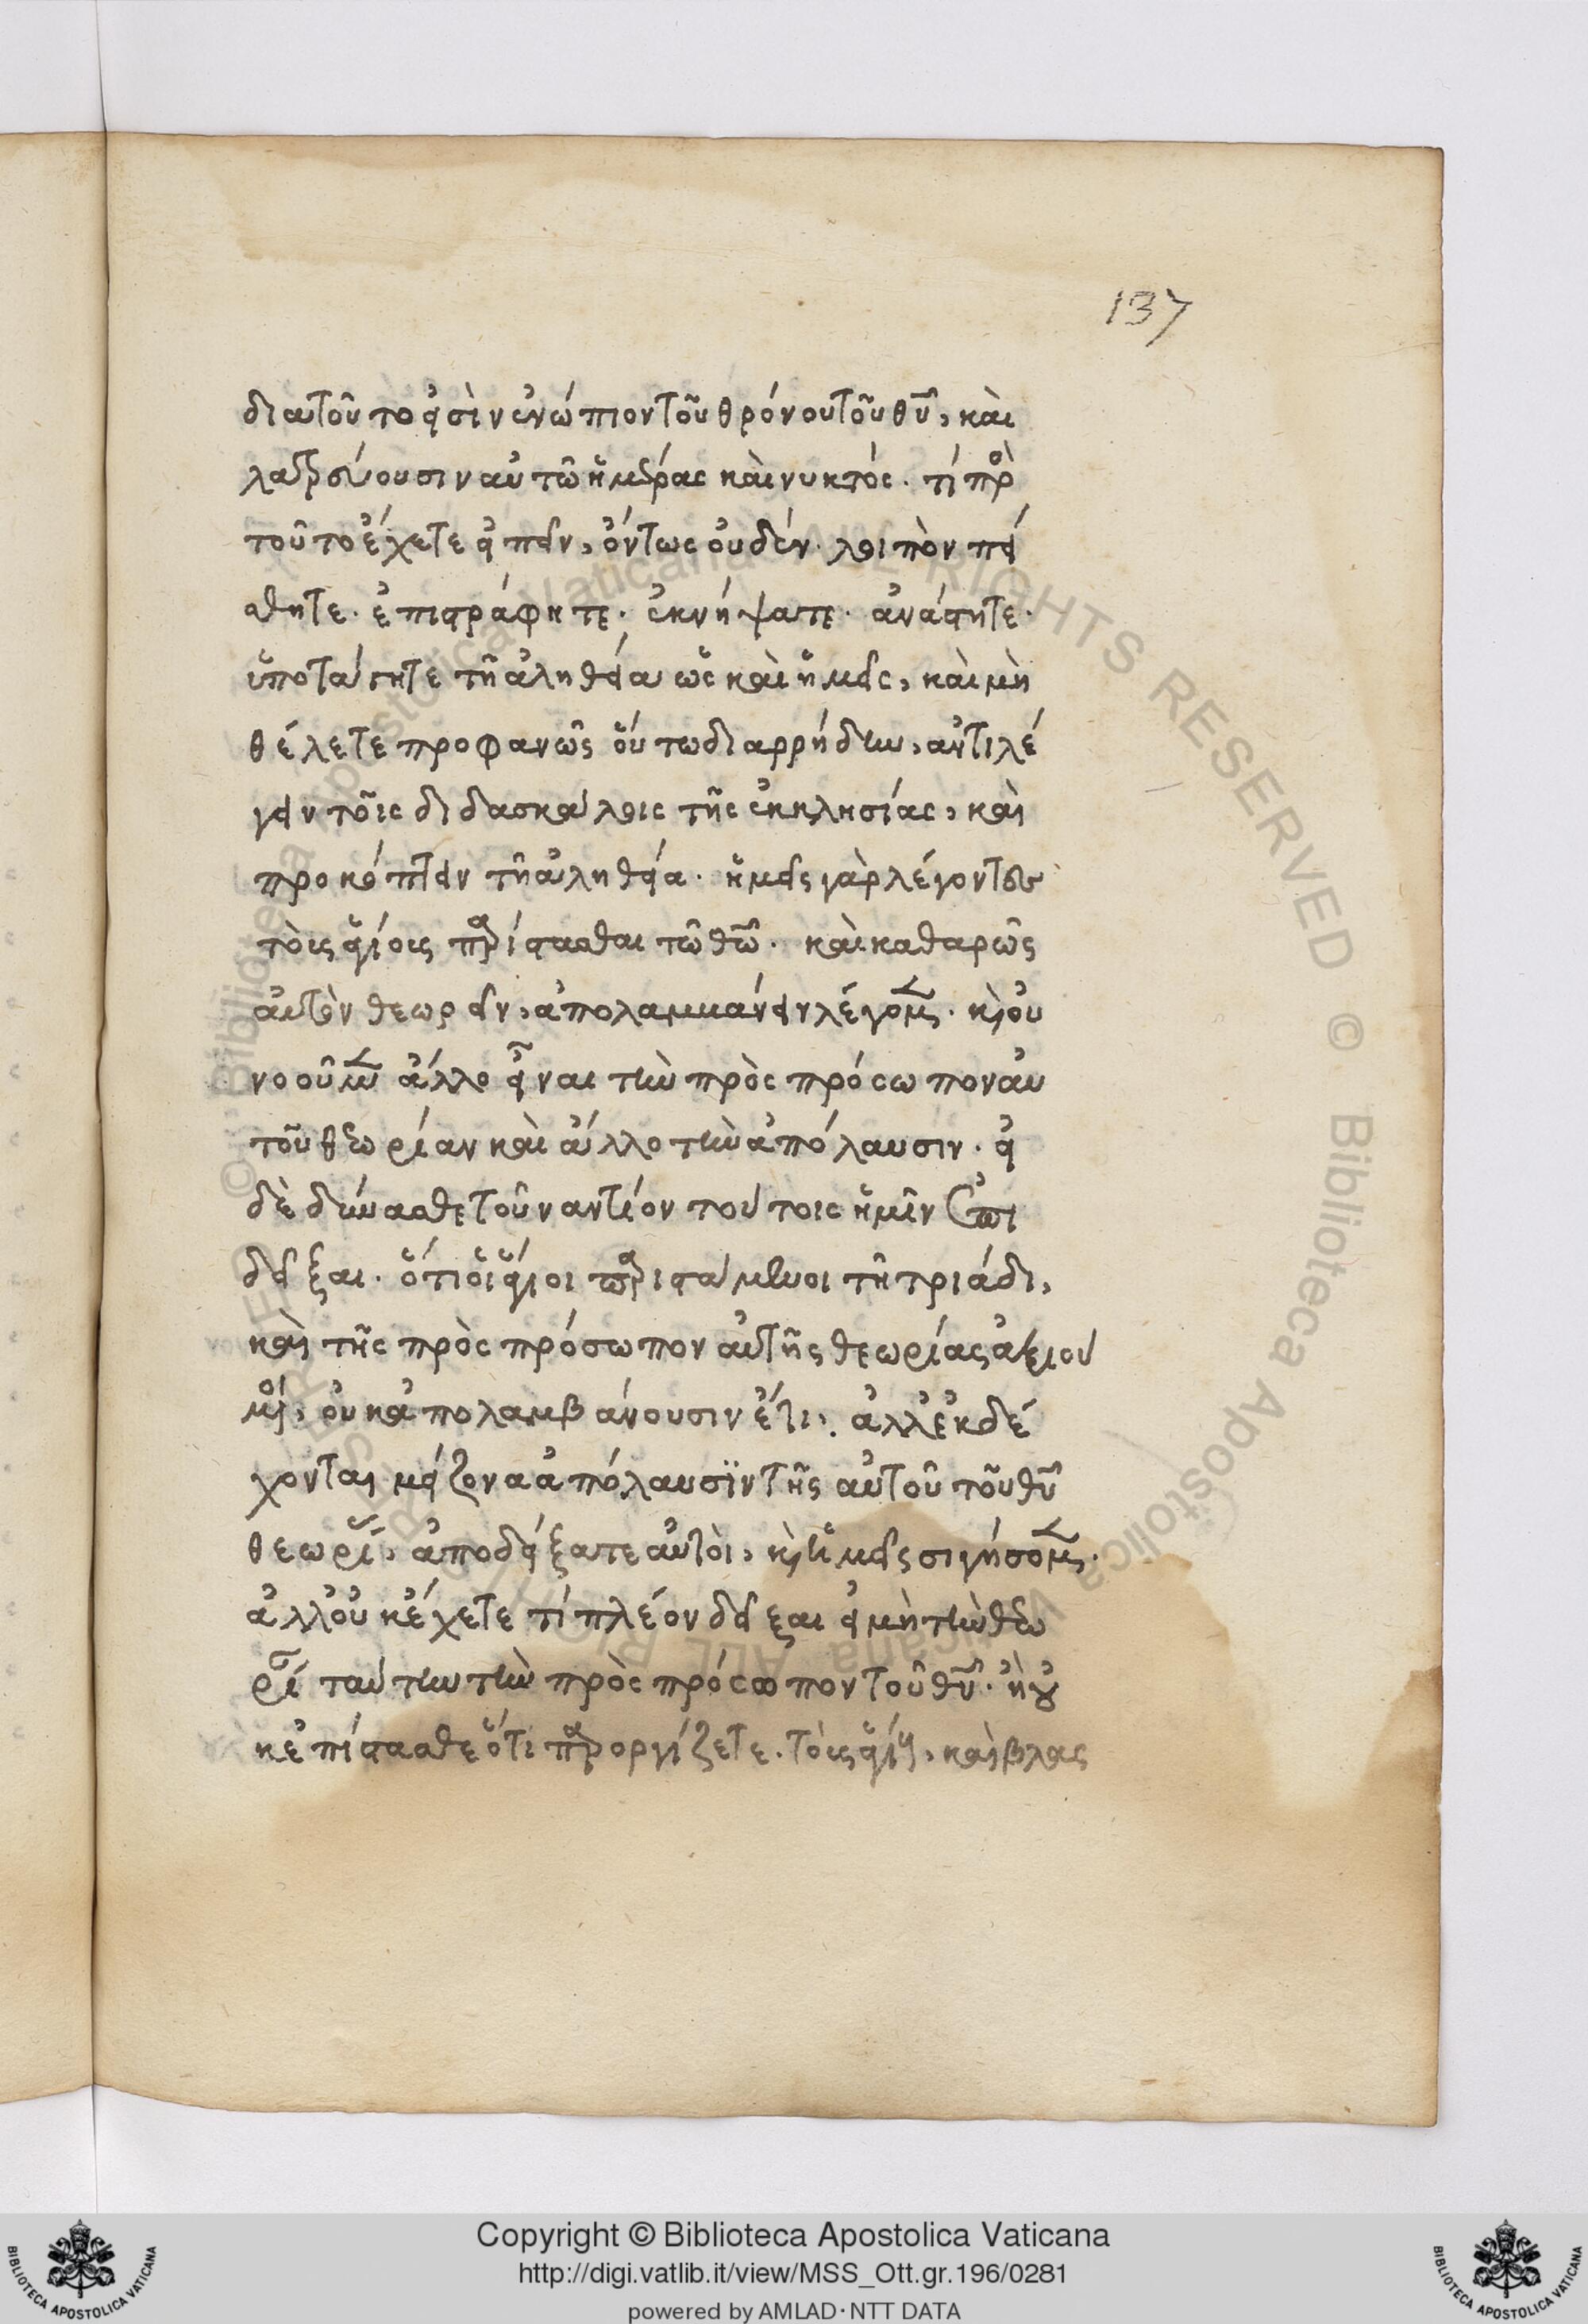 137
διατοῦτο εἰσὶν ἐνώπιον τοῦ θρόνου τοῦ θυ, καὶ
λατρεύουσιν αὐτῶ ἡμέρας καὶ νυκτός. τί πρὸ
τοῦτο ἔχετε εἰπεῖν, ὄντως οὐδέν. λοιπὸν πεί
σθητε. ἐπιστράφητε. ἐκνήψατε. ἀνάστητε.
ὑποτάγητε τῆ ἀληθεία ὡς καὶ ἡμεῖς, καὶ μὴ
θέλετε προφανῶς οὕτω διαρρήδην, ἀντιλέ
γειν τοῖς διδασκάλοις τῆς ἐκκλησίας, καὶ
προκόπτειν τῆ ἀληθεία. ἡμεῖς γὰρ λέγοντες
τοὺς ἁγίους παρίστασθαι τῶ θῶ. καὶ καθαρῶς
αὐτὸν θεωρεῖν, ἀπολαμμάνειν λέγομεν. κ οὐ
νοοῦμεν ἄλλο εἶναι τὴν πρὸς πρόσωπον αὐ
τοῦ θεωρίαν καὶ ἄλλο τὴν ἀπόλαυσιν. εἰ
δὲ δύνασθε τοὐναντίον τούτοις ἡμῖν ἐπι
δεῖξαι. ὅτι οἱ ἅγιοι παριστάμενοι τῆ τριάδι,
καὶ τῆς πρὸς πρόσωπον αὐτῆς θεωρίας ἀξιού
μενοι, οὐκ ἀπολαμβάνουσιν ἔτι. ἀλλ' ἐκδέ
χονται μείζονα ἀπόλαυσϊν τῆς αὐτοῦ τοῦ θυ
θεωρίας, ἀποδείξατε αὐτοὶ, κ ἡμεῖς σιγήσομεν.
ἀλλ' οὐκ ἔχετε τί πλέον δεῖξαι εἰ μὴ τὴν θεω
ρίαν ταύτην τὴν πρὸς πρόσωπον τοῦ θυ. ἢ οὐ
κ ἐπίστασθε ὅτι παροργίζετε. τοὺς ἁγίους, καὶ βλασ
Copyright © Biblioteca Apostolica Vaticana
http://digi.vatlib.it/view/MSS_Ott.gr.196/0281
powered by AMLAD·NTT DATA